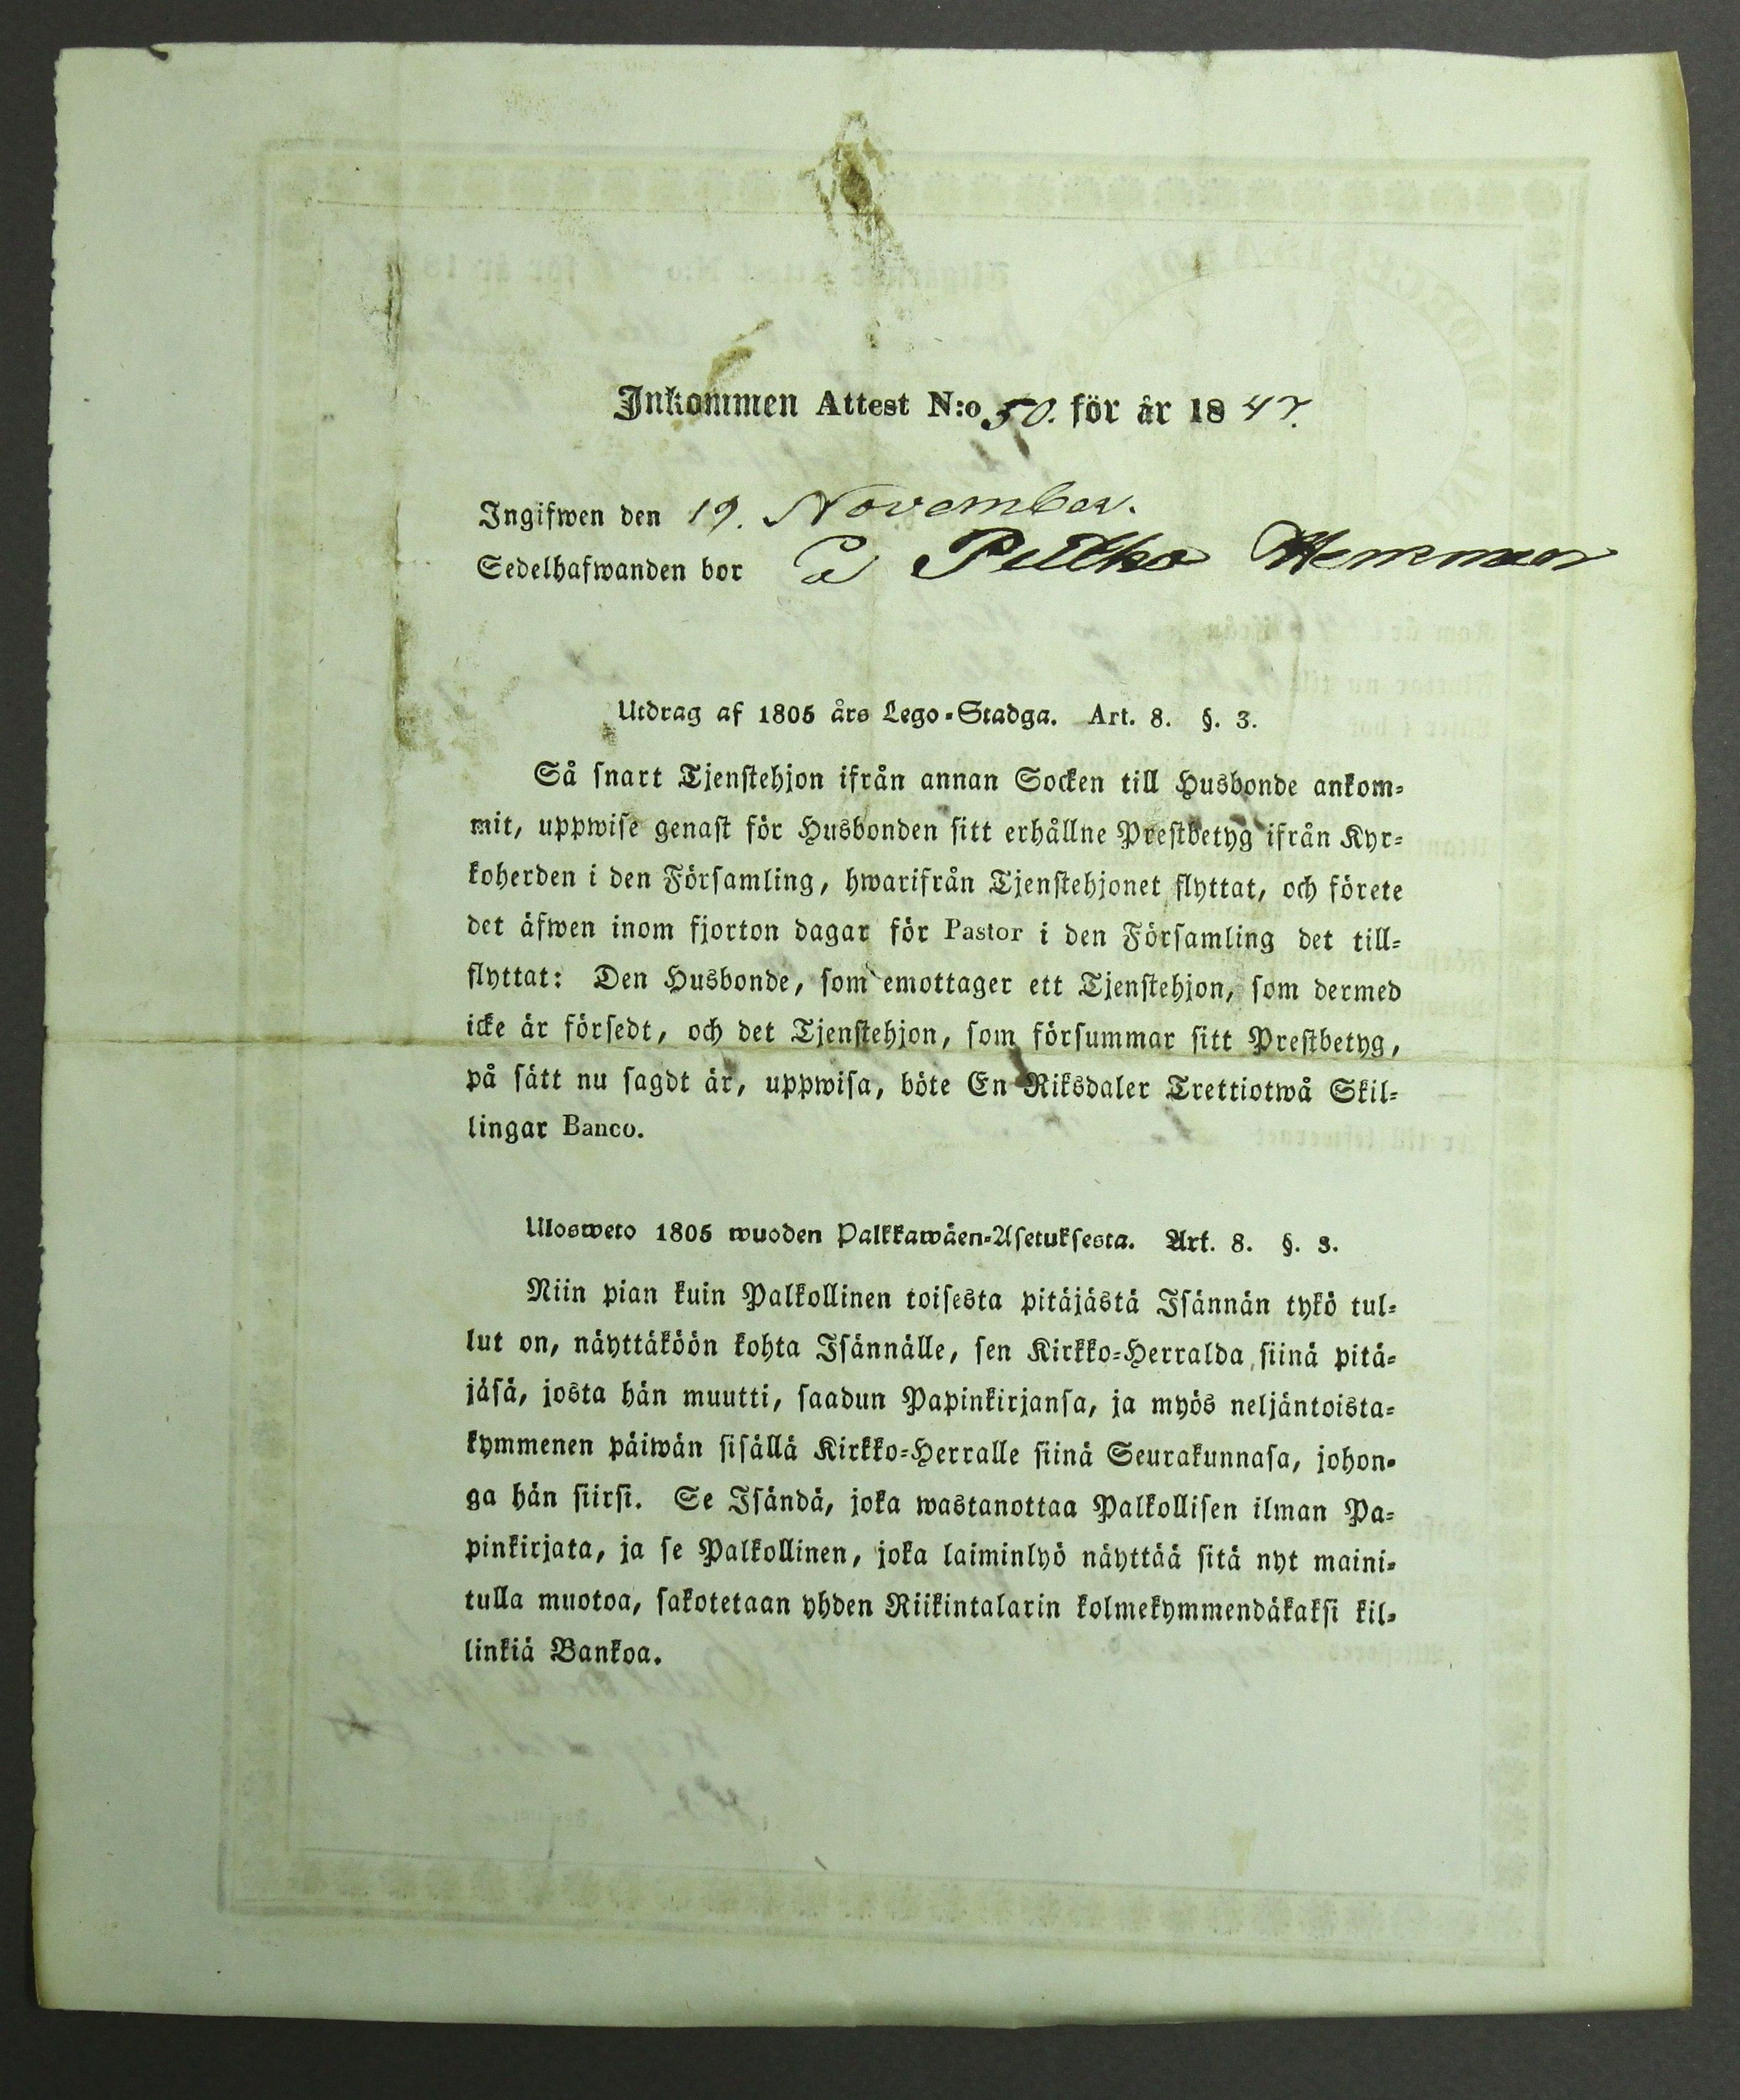 Inkommen Attest N:o 50. för år 1847.
Ingifwen den 19. November.
Sedelhafwanden bor På Pellko Hemman
Utdrag af 1805 års Lego-Stadga. Art. 8. §. 3.
Så snart Tjenstehjon ifrån annan Socken till Husbonde ankom-
mit, uppwise genast för Husbonden sitt erhållne Prestbetyg ifrån Kyr-
koherden i den Församling, hwarifrån Tjenstehjonet flyttat, och förete
det äfwen inom fjorton dagar för Pastor i den Församling det till-
flyttat: Den Husbonde, som emottager ett Tjenstehjon, som dermed
icke är försedt, och det Tjenstehjon, som försummar sitt Prestbetyg,
på sätt nu sagdt är, uppwisa, böte En Riksdaler Trettiotwå Skil-
lingar Banco.
Ulosweto 1805 wuoden Palkkawäen-Asetuksesta. Art. 8. §. 3.
Niin pian kuin Palkollinen toisesta pitäjästä Isännän tykö tul-
lut on, näyttäköön kohta Isännälle, sen Kirkko-Herralda siinä pitä-
jäsä, josta hän muutti, saadun Papinkirjansa, ja myös neljäntoista-
kymmenen päiwän sisällä Kirkko-Herralle siinä Seurakunnasa, johon-
ga hän siirsi. Se Isändä, joka wastanottaa Palkollisen ilman Pa-
pinkirjata, ja se Palkollinen, joka laiminlyö näyttää sitä nyt maini-
tulla muotoa, sakotetaan yhden Riikintalarin kolmekymmendäkaksi kil-
linkiä Bankoa.